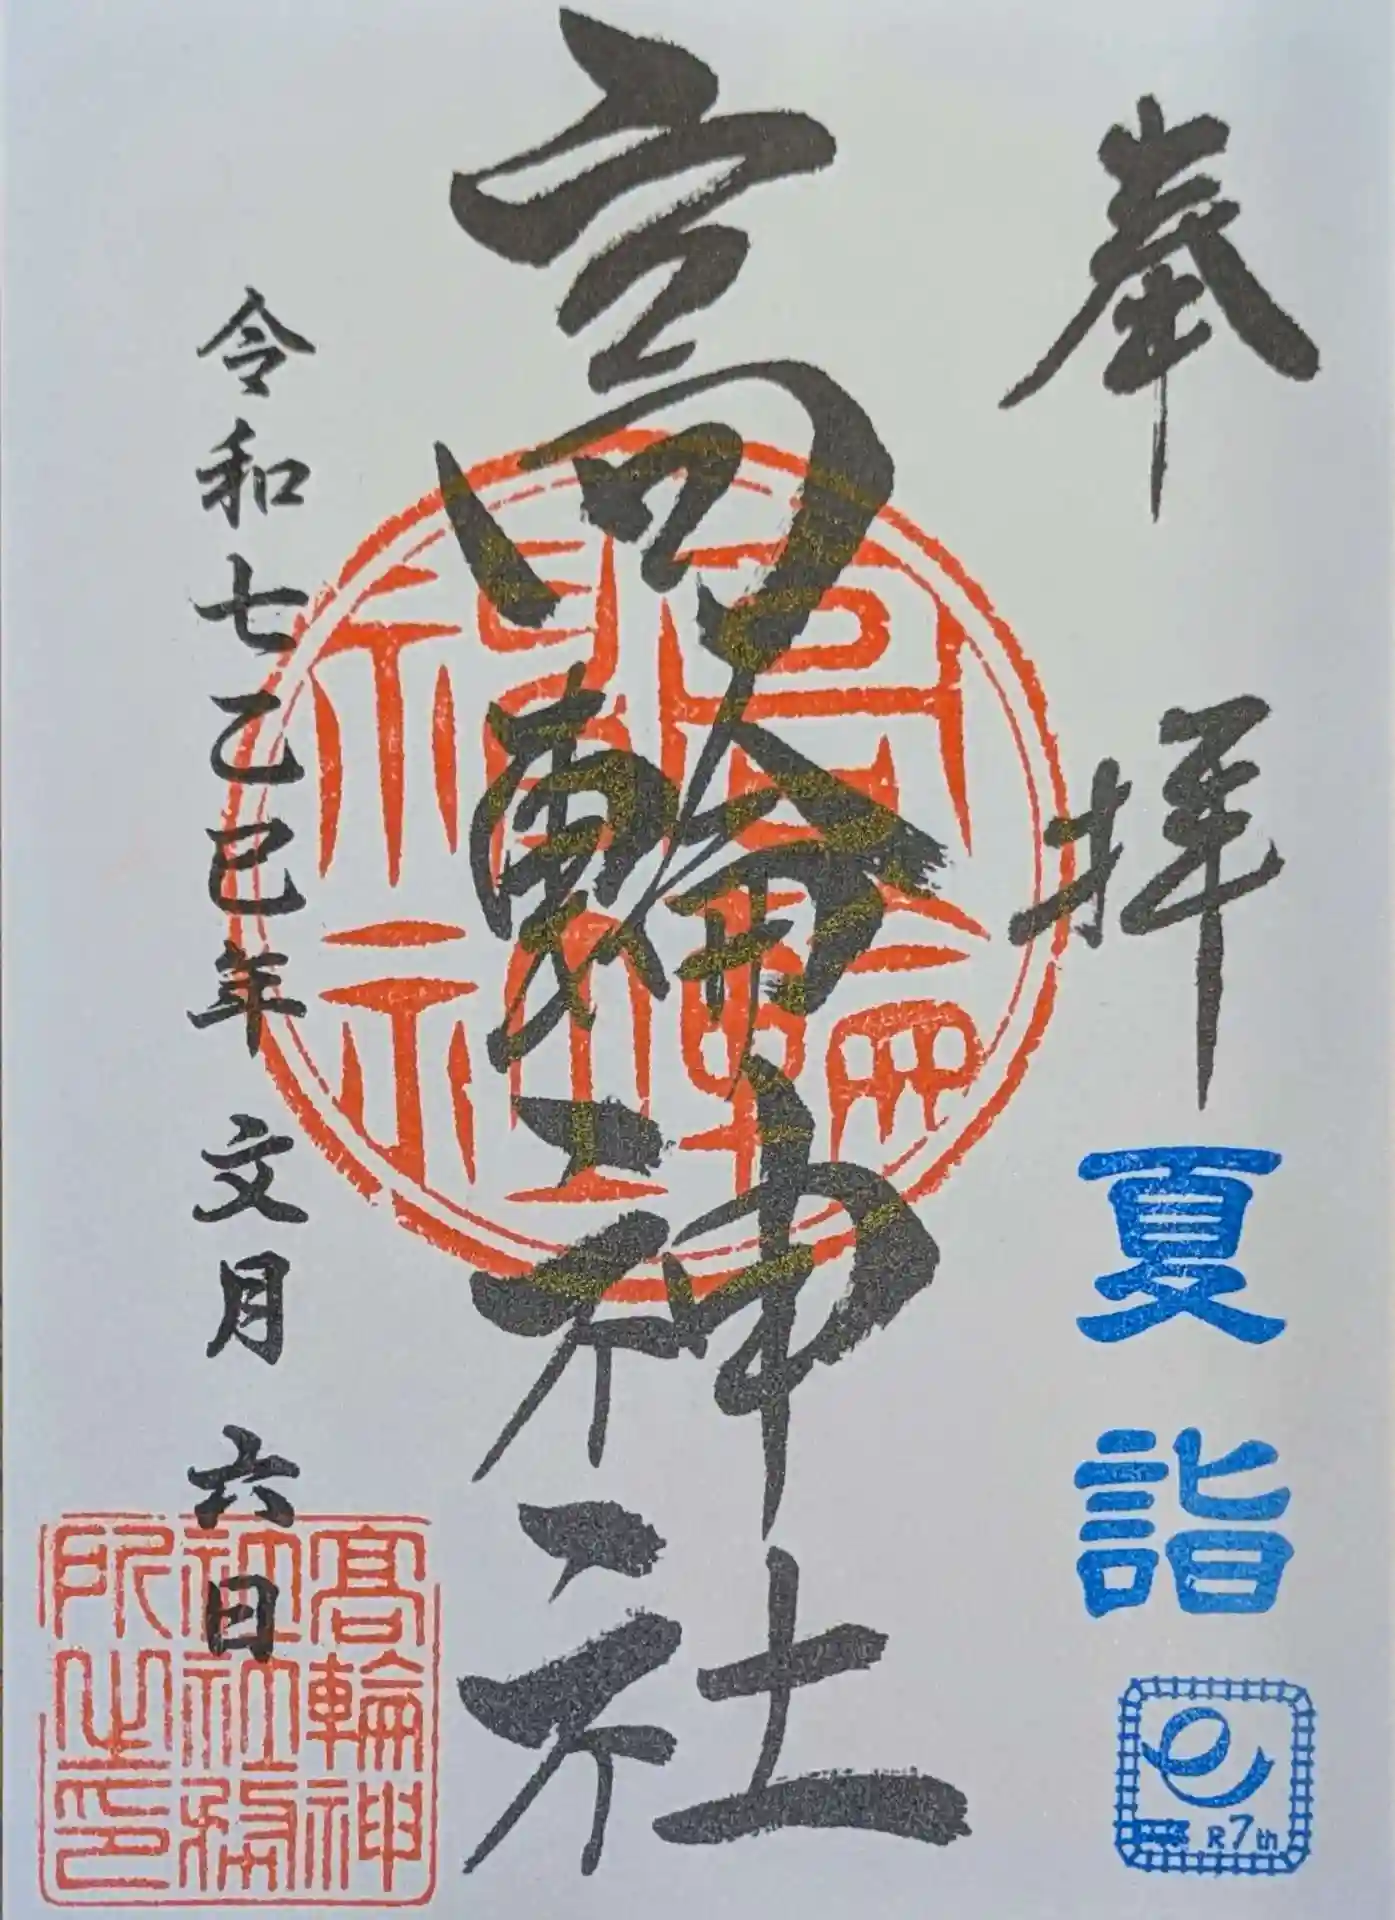 奉拝
夏詣
R7th
高輪神社
高輪神社
令和七乙巳年 文月 六日
高輪神社社務所之印